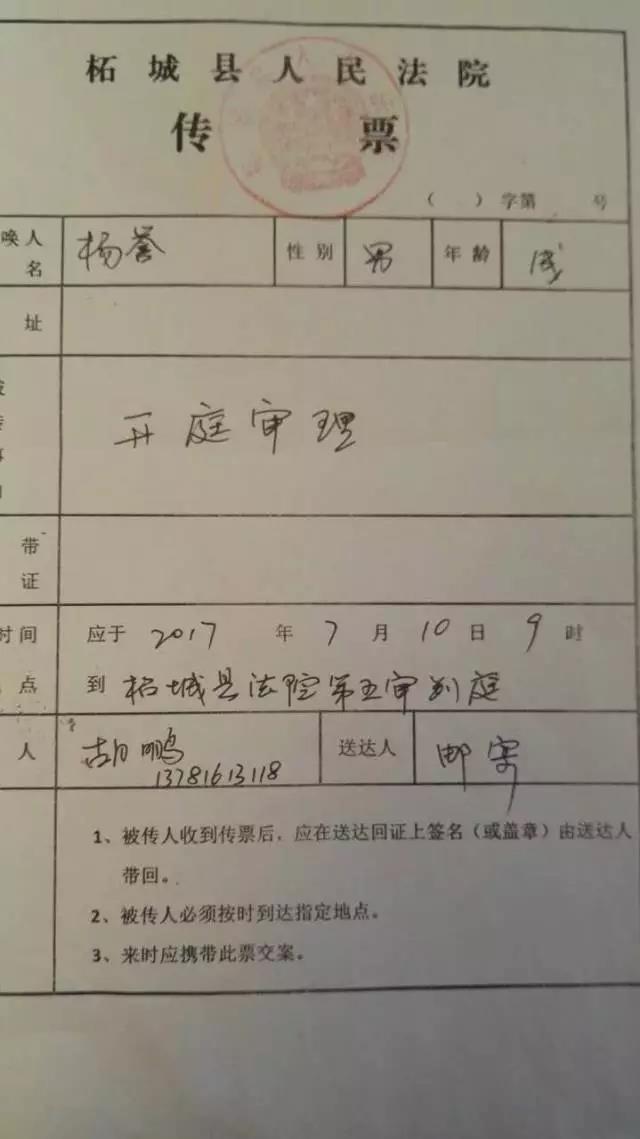 柘城县人民法院
传 票
（ ）字第 号
唤人 杨誉 性别 男 年龄 成
名
址
开庭审理
带
证
时间 应于 2017 年 7 月 10 日 9 时
点 到 柘城县法院第五审判庭
人 胡鹏 送达人 邮寄
13781613118
1、被传人收到传票后，应在送达回证上签名（或盖章）由送达人
带回。
2、被传人必须按时到达指定地点。
3、来时应携带此票交案。